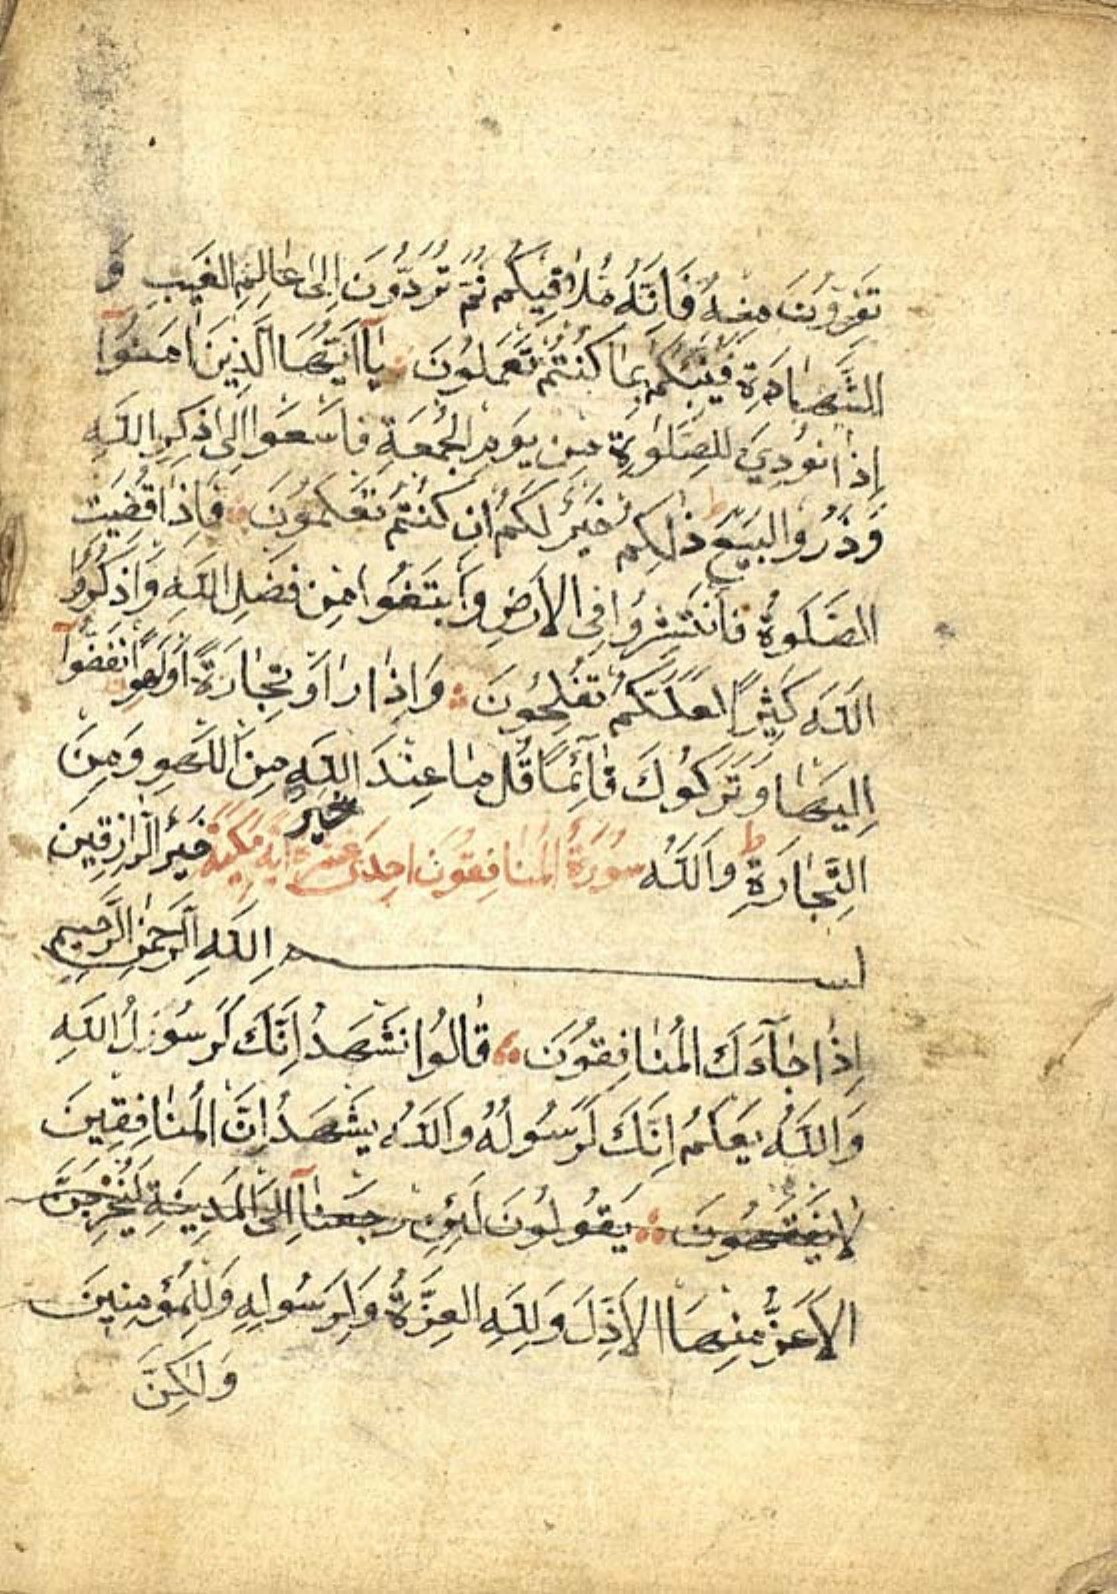 تَفِرُّونَ مِنْهُ فَاِنَّهُ مُلَاقِيكُمْ ثُمَّ تُرَدُّونَ اِلَى عَالِمِ الغَيْبِ وَ
الشَّهَادَةِ فَيُنَبِّئُكُمْ بِمَا كُنْتُمْ تَعْمَلُونَ يَآ اَيُّهَا الَّذِينَ اٰمَنُوآ
اِذَا نُودِيَ لِلصَّلٰوةِ مِنْ يَوْمِ الجُمُعَةِ فَاسْعَوْا اِلَى ذِكْرِ اللَّهِ
وَذَرُوا البَيْعَ ط ذٰلِكُمْ خَيْرٌ لَكُمْ اِنْ كُنْتُمْ تَعْلَمُونَ فَاِذَا قُضِيَت
الصَّلَوةُ فَانْتَشِرُوا فِى الاَرْضِ وَابْتَغُوا مِنْ فَضْلِ اللَّهِ وَاذْكُرُوا
اللَّهَ كَثِيرًا لَعَلَّكُمْ تُفْلِحُونَ وَاِذَا رَاَوْ تِجَارَةً اَوْ لَهْوًا انْفَضُّوآ
اِلَيْهَا وَتَرَكُوكَ قَآئِمًا قُلْ مَا عِنْدَ اللَّهِ خَيْرٌ مِنَ اللَّهْوِ وَمِنَ
التِّجَارَةِ ط وَاللَّهُ خَيْرُ الرَّازِقِينَ سُورَةُ المُنَافِقُونَ احِدَىَ عَشرة اٰيَةً مَكِيَّةً
بسم اللَّهِ الرَّحْمٰنِ الرَّحِيمِ
اِذَا جَآءَكَ المُنَافِقُونَ قَالُوا نَشْهَدُ اِنَّكَ لَرَسُولُ اللَّهِ
وَاللَّهُ يَعْلَمُ اِنَّكَ لَرَسُولُهُ وَاللَّهُ يَشْهَدُ اِنَّ المُنَافِقِينَ
لَا يَفْقَهُونَ يَقُولُونَ لَئِنْ رَجَعْنَآ اِلَى المَدِينَةِ لَيُخْرِجَنَّ
الاَعَزُّ مِنْهَا الاَذَلَّ وَلِلَّهِ العِزَّةُ وَلِرَسُولِهِ وَلِلْمُؤْمِنِينَ
وَلٰكِنَّ